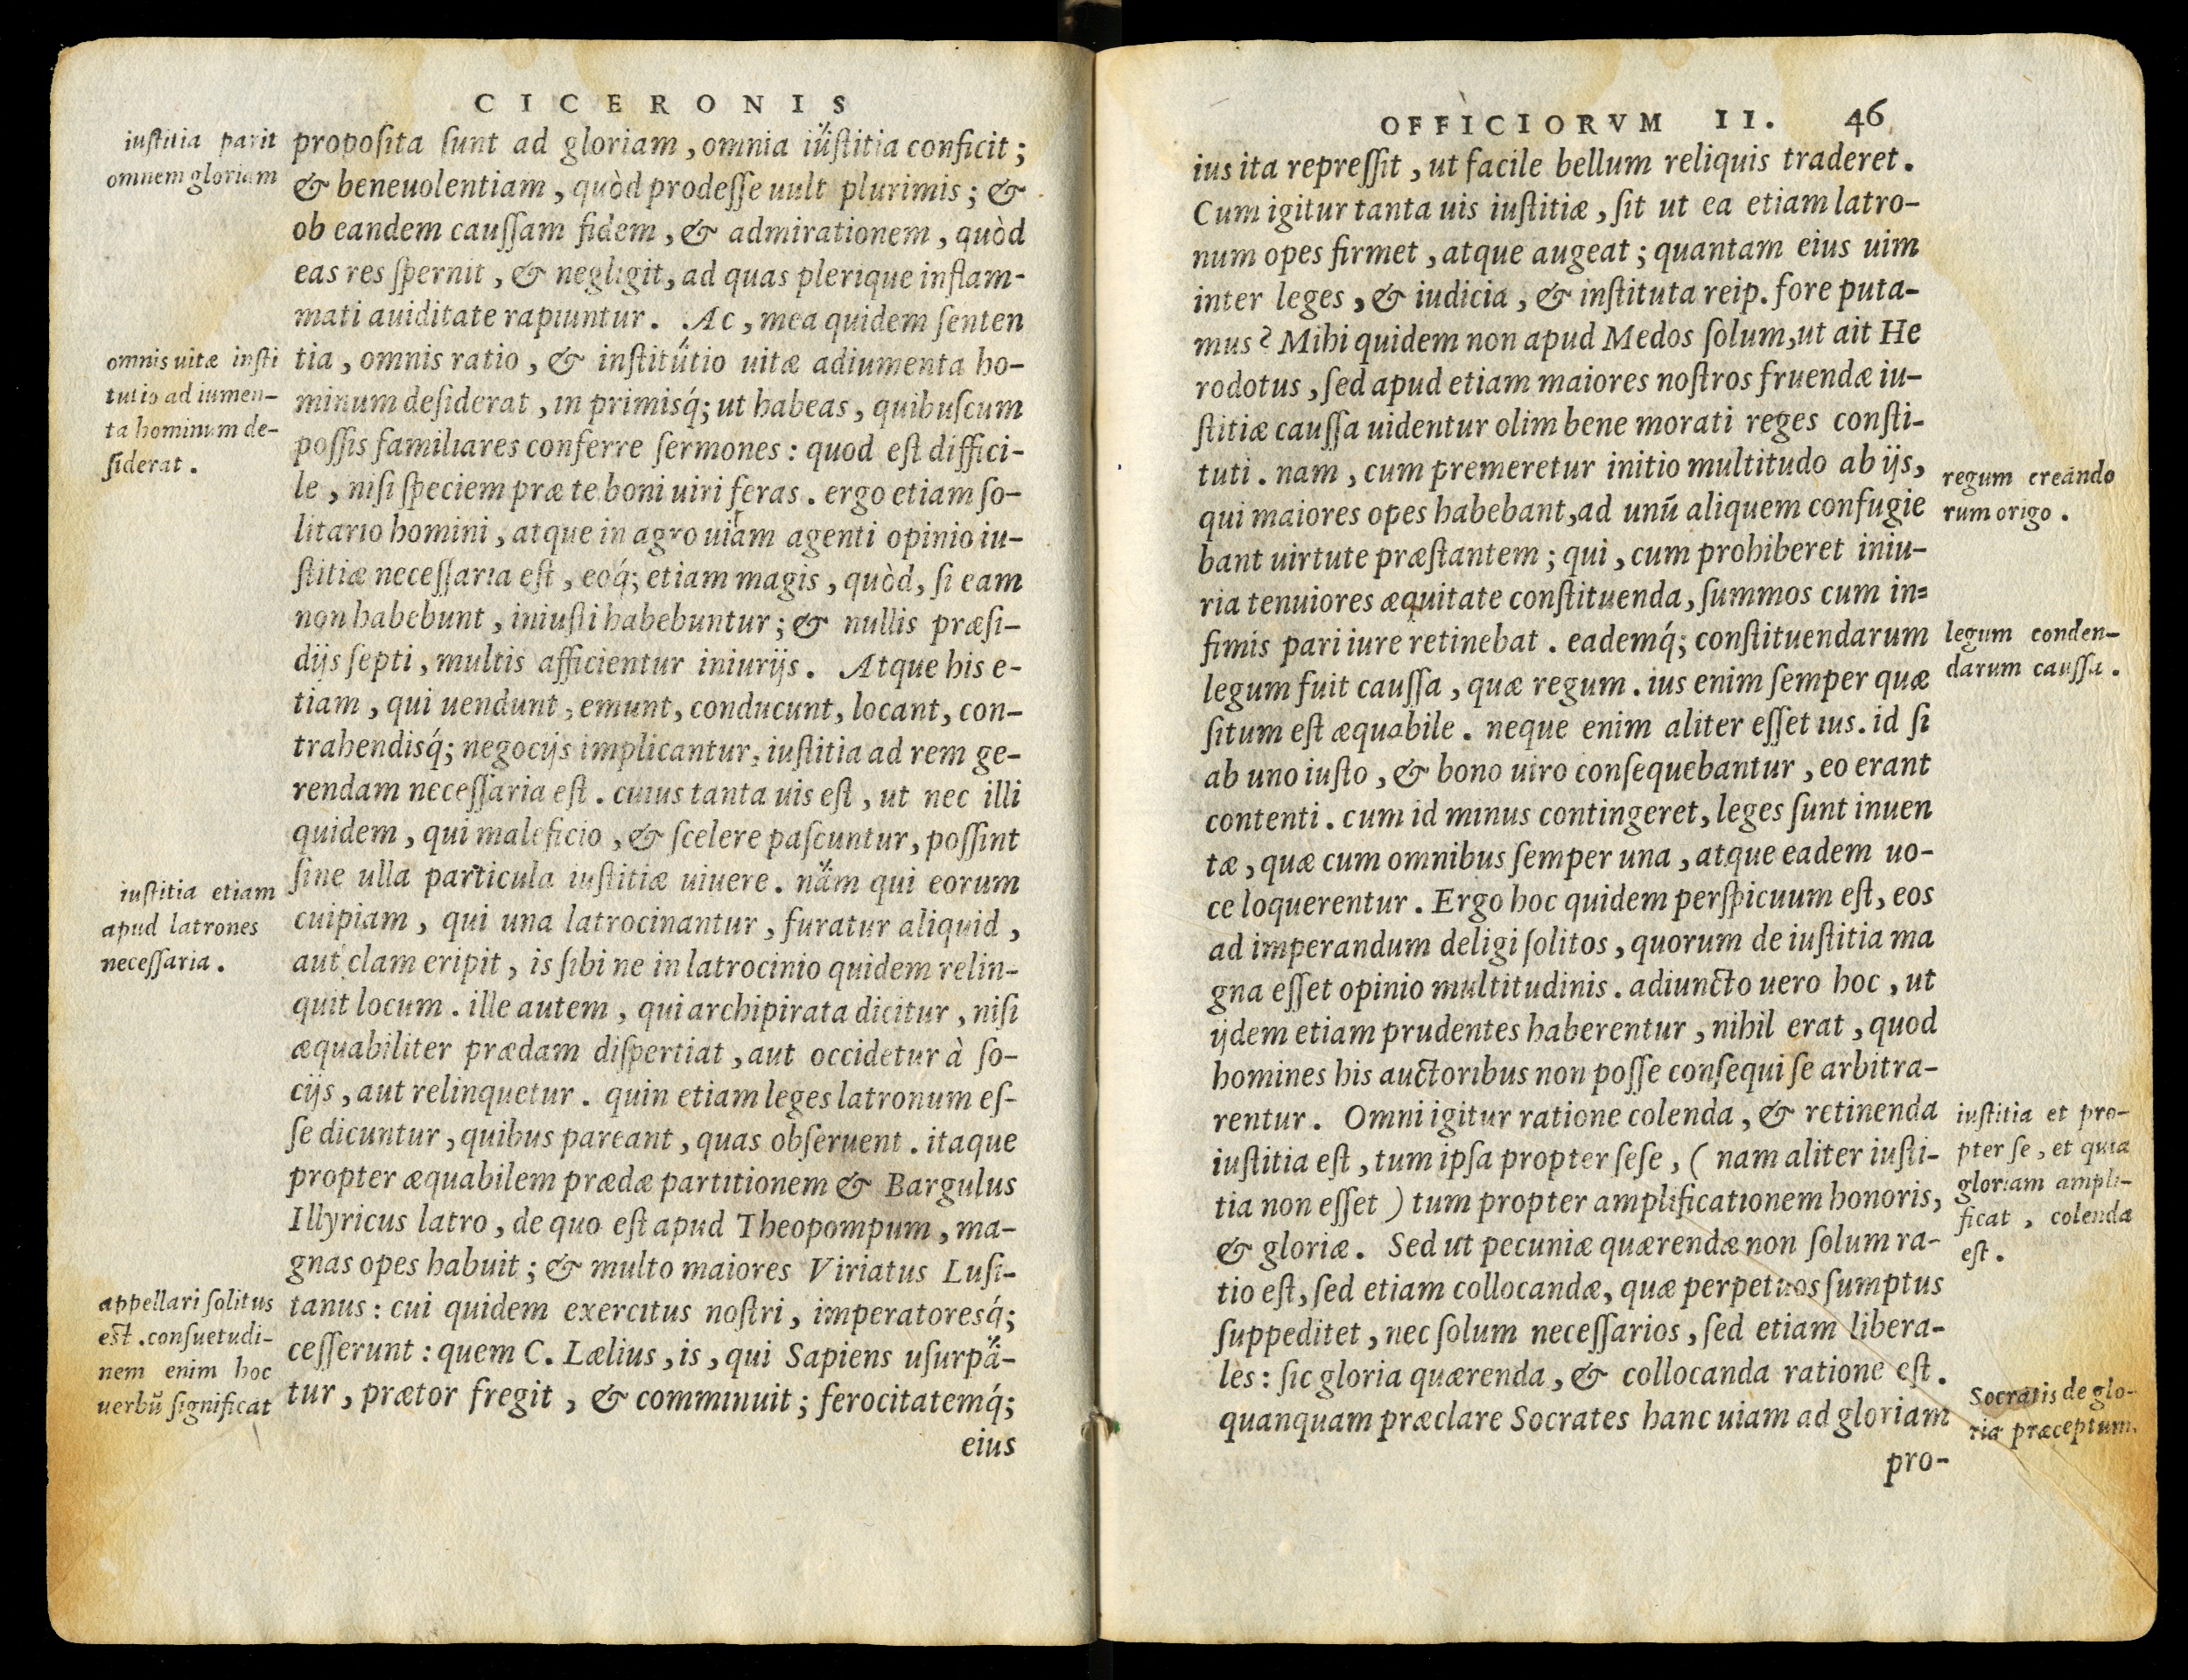 CICERONIS
iuſtitia parit
omnem gloriam
propoſita ſunt ad gloriam, omnia iuſtitia conficit;
& beneuolentiam, quòd prodeſſe uult plurimis; &
ob eandem cauſſam fidem, & admirationem, quòd
eas res ſpernit, & negligit, ad quas plerique inflam-
mati auiditate rapiuntur. Ac, mea quidem ſenten
omnis uitæ inſti
tutio ad iumen-
ta hominum de-
ſiderat.
tia, omnis ratio, & inſtitutio uitæ adiumenta ho-
minum deſiderat, in primisq́; ut habeas, quibuſcum
poſſis familiares conferre ſermones: quod eſt diffici-
le, niſi ſpeciem præ te boni uiri feras. ergo etiam ſo-
litario homini, atque in agro uitam agenti opinio iu-
ſtitiæ neceſſaria eſt, eoq́; etiam magis, quòd, ſi eam
non habebunt, iniuſti habebuntur; & nullis præſi-
dijs ſepti, multis afficientur iniurijs. Atque his e-
tiam, qui uendunt, emunt, conducunt, locant, con-
trahendisq́; negocijs implicantur, iuſtitia ad rem ge-
rendam neceſſaria eſt. cuius tanta uis eſt, ut nec illi
quidem, qui maleficio, & ſcelere paſcuntur, poſſint
ſine ulla particula iuſtitiæ uiuere. nam qui eorum
iuſtitia etiam
apud latrones
neceſſaria.
cuipiam, qui una latrocinantur, furatur aliquid,
aut clam eripit, is ſibi ne in latrocinio quidem relin-
quit locum. ille autem, qui archipirata dicitur, niſi
æquabiliter prædam diſpertiat, aut occidetur à ſo-
cijs, aut relinquetur. quin etiam leges latronum eſ-
ſe dicuntur, quibus pareant, quas obſeruent. itaque
propter æquabilem prædæ partitionem & Bargulus
Illyricus latro, de quo eſt apud Theopompum, ma-
gnas opes habuit; & multo maiores Viriatus Luſi-
appellari ſolitus
eſt. conſuetudi-
nem enim hoc
uerbū ſignificat
tanus: cui quidem exercitus noſtri, imperatoresq́;
ceſſerunt: quem C. Lælius, is, qui Sapiens uſurpa-
tur, prætor fregit, & comminuit; ferocitatemq́;
eius
OFFICIORVM II. 46
ius ita repreſſit, ut facile bellum reliquis traderet.
Cum igitur tanta uis iuſtitiæ, ſit ut ea etiam latro-
num opes firmet, atque augeat; quantam eius uim
inter leges, & iudicia, & inſtituta reip. fore puta-
mus? Mihi quidem non apud Medos ſolum, ut ait He
rodotus, ſed apud etiam maiores noſtros fruendæ iu-
ſtitiæ cauſſa uidentur olim bene morati reges conſti-
tuti. nam, cum premeretur initio multitudo ab ijs,
qui maiores opes habebant, ad unū aliquem confugie
regum creando
rum origo.
bant uirtute præſtantem; qui, cum prohiberet iniu-
ria tenuiores æquitate conſtituenda, ſummos cum in=
fimis pari iure retinebat. eademq́; conſtituendarum
legum fuit cauſſa, quæ regum. ius enim ſemper quæ
legum conden-
darum cauſſa.
ſitum eſt æquabile. neque enim aliter eſſet ius. id ſi
ab uno iuſto, & bono uiro conſequebantur, eo erant
contenti. cum id minus contingeret, leges ſunt inuen
tæ, quæ cum omnibus ſemper una, atque eadem uo-
ce loquerentur. Ergo hoc quidem perſpicuum eſt, eos
ad imperandum deligi ſolitos, quorum de iuſtitia ma
gna eſſet opinio multitudinis. adiuncto uero hoc, ut
ijdem etiam prudentes haberentur, nihil erat, quod
homines his auctoribus non poſſe conſequi ſe arbitra-
rentur. Omni igitur ratione colenda, & retinenda
iuſtitia eſt, tum ipſa propter ſeſe, ( nam aliter iuſti-
tia non eſſet ) tum propter amplificationem honoris,
& gloriæ. Sed ut pecuniæ quærendæ non ſolum ra-
iuſtitia et pro-
pter ſe, et quia
gloriam ampli-
ficat, colenda
eſt.
tio eſt, ſed etiam collocandæ, quæ perpetuos ſumptus
ſuppeditet, nec ſolum neceſſarios, ſed etiam libera-
les: ſic gloria quærenda, & collocanda ratione eſt.
quanquam præclare Socrates hanc uiam ad gloriam
Socratis de glo-
ria præceptum.
pro-